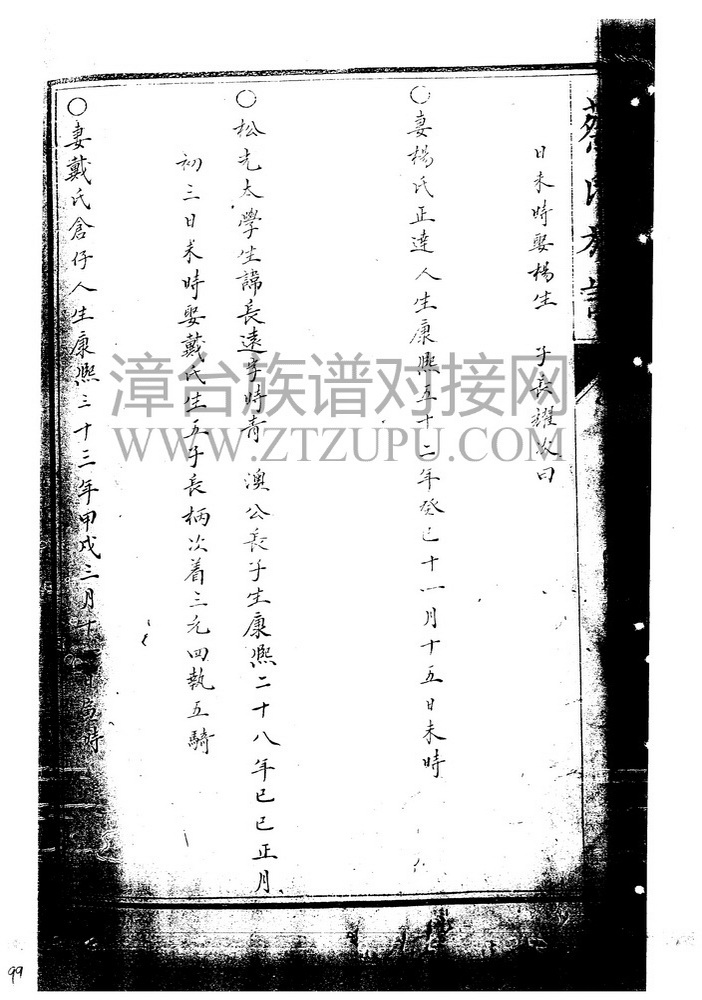 蔡氏族譜
日未時娶楊生 子長耀次曰
○妻楊氏正達人生康熙五十二年癸巳十一月十五日未時
○松允太學生諱長遠字時青 澳公長子生康熙二十八年己巳正月
初三日未時娶戴氏生五子長柄次着三允四執五騎
○妻戴氏倉仔人生康熙三十三年甲戌三月十日時
漳台族谱对接网
WWW.ZTZUPU.COM
99